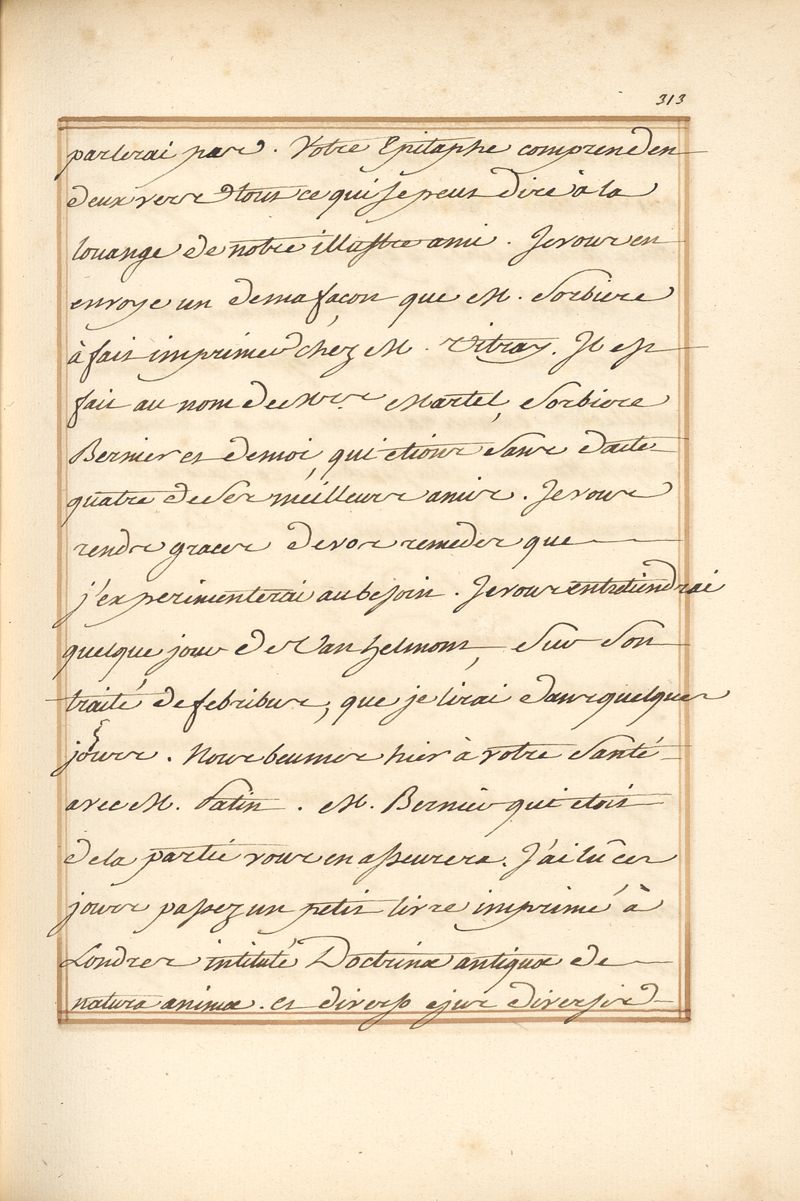 313
parlerai pas. Votre Epitaphe comprend en
deux vers tout ce qui se peut dire à la
louange de notre illustre ami. Je vous en
envoye un de ma façon que M. Sorbiere
à fait imprimer chez M. Vitray. Il est
fait au nom de Mrs. Martel, Sorbiere
Bernier et de moi, qui etions sans doute
quatre de ses meilleurs amis. Je vous
rends graces de vos remedes que
j'experimenterai au besoin. Je vous entretiendrai
quelque jour de Van helmont, sur son
traité de febribus, que je lirai dans quelques
jours. Nous beumes hier à votre santé
avec M. Patin. M. Bernier qui etoit
de la partie vous en asseurera. J'ai lû ces
jours passez un petit livre imprimé à
Londres intitulé Doctrinæ antiquæ de
natura animæ. et diverso ejus diversis